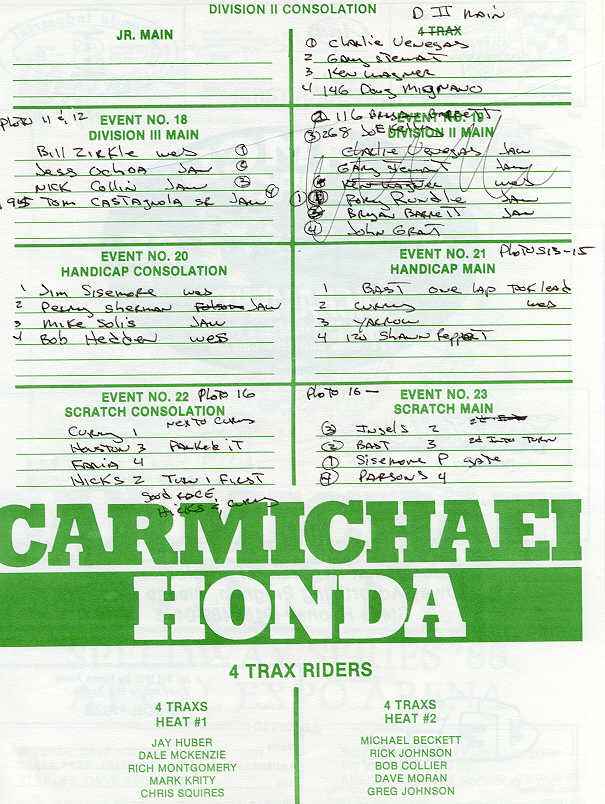 DIVISION II CONSOLATION
D II MAIN
JR. MAIN
4 TRAX
① Charlie Venegas
2 Gary Stewart
3 Ken Wagner
4 146 Doug Mignano
Photo 11 & 12
EVENT NO. 18
DIVISION III MAIN
Bill Zirkle wes ①
Jess Ochoa JAW
Nick Collin JAW ③
Tom Castagnola SR JAW ④
② 116 Bryan Barrett
③ 268 Joe
EVENT NO. 19
DIVISION II MAIN
Charlie Venegas JAW
Gary Stewart JAW
Ken Wagner wes
① Rory Rundle JAW
Bryan Barrett JAW
④ John Grat
EVENT NO. 20
HANDICAP CONSOLATION
1 Jim Sisemore wes
2 Perry Sherman Folsom JAW
3 Mike Solis JAW
4 Bob Hedden wes
EVENT NO. 21 Photos 13-15
HANDICAP MAIN
1 BAST one lap took lead
2 Curry wes
3 Yarrow
4 120 Shawn
EVENT NO. 22 Photo 16
SCRATCH CONSOLATION
next to Curry
Curry 1
Houston 3 Parker it
Faria 4
Hicks 2 Turn 1 First
Good Race,
Hicks &, Curry
Photo 16 -
EVENT NO. 23
SCRATCH MAIN
③ Ingels 2
② BAST 3 2d into turn
① Sisemore P gate
④ Parsons 4
CARMICHAEL
HONDA
4 TRAX RIDERS
4 TRAXS
HEAT #1
JAY HUBER
DALE MCKENZIE
RICH MONTGOMERY
MARK KRITY
CHRIS SQUIRES
4 TRAXS
HEAT #2
MICHAEL BECKETT
RICK JOHNSON
BOB COLLIER
DAVE MORAN
GREG JOHNSON